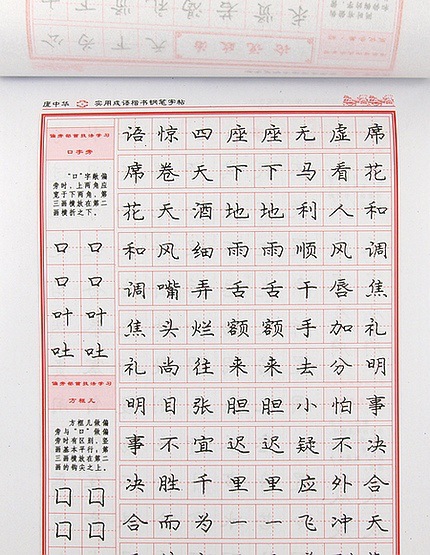 庞中华 实用成语楷书钢笔字帖
偏旁部首技法学习
口字旁
“口”字做偏
旁时，上两角应
宽于下两角，第
三画横放在第二
画横折之下。
口 口
口 口
叶 叶
吐 吐
偏旁部首技法学习
方框儿
方框儿做偏
旁与“口”做偏
旁时有区别，竖
画基本平行，第
三画横放在第二
画的钩尖之上。
囗 囗
囗 囗
语惊四座座无虚席
席卷天下下马看花
花天酒地地利人和
和风细雨雨顺风调
调嘴弄舌舌干唇焦
焦头烂额额手加礼
礼尚往来来去分明
明目张胆胆小怕事
事不宜迟迟疑不决
决胜千里里应外合
合而为一一飞冲天